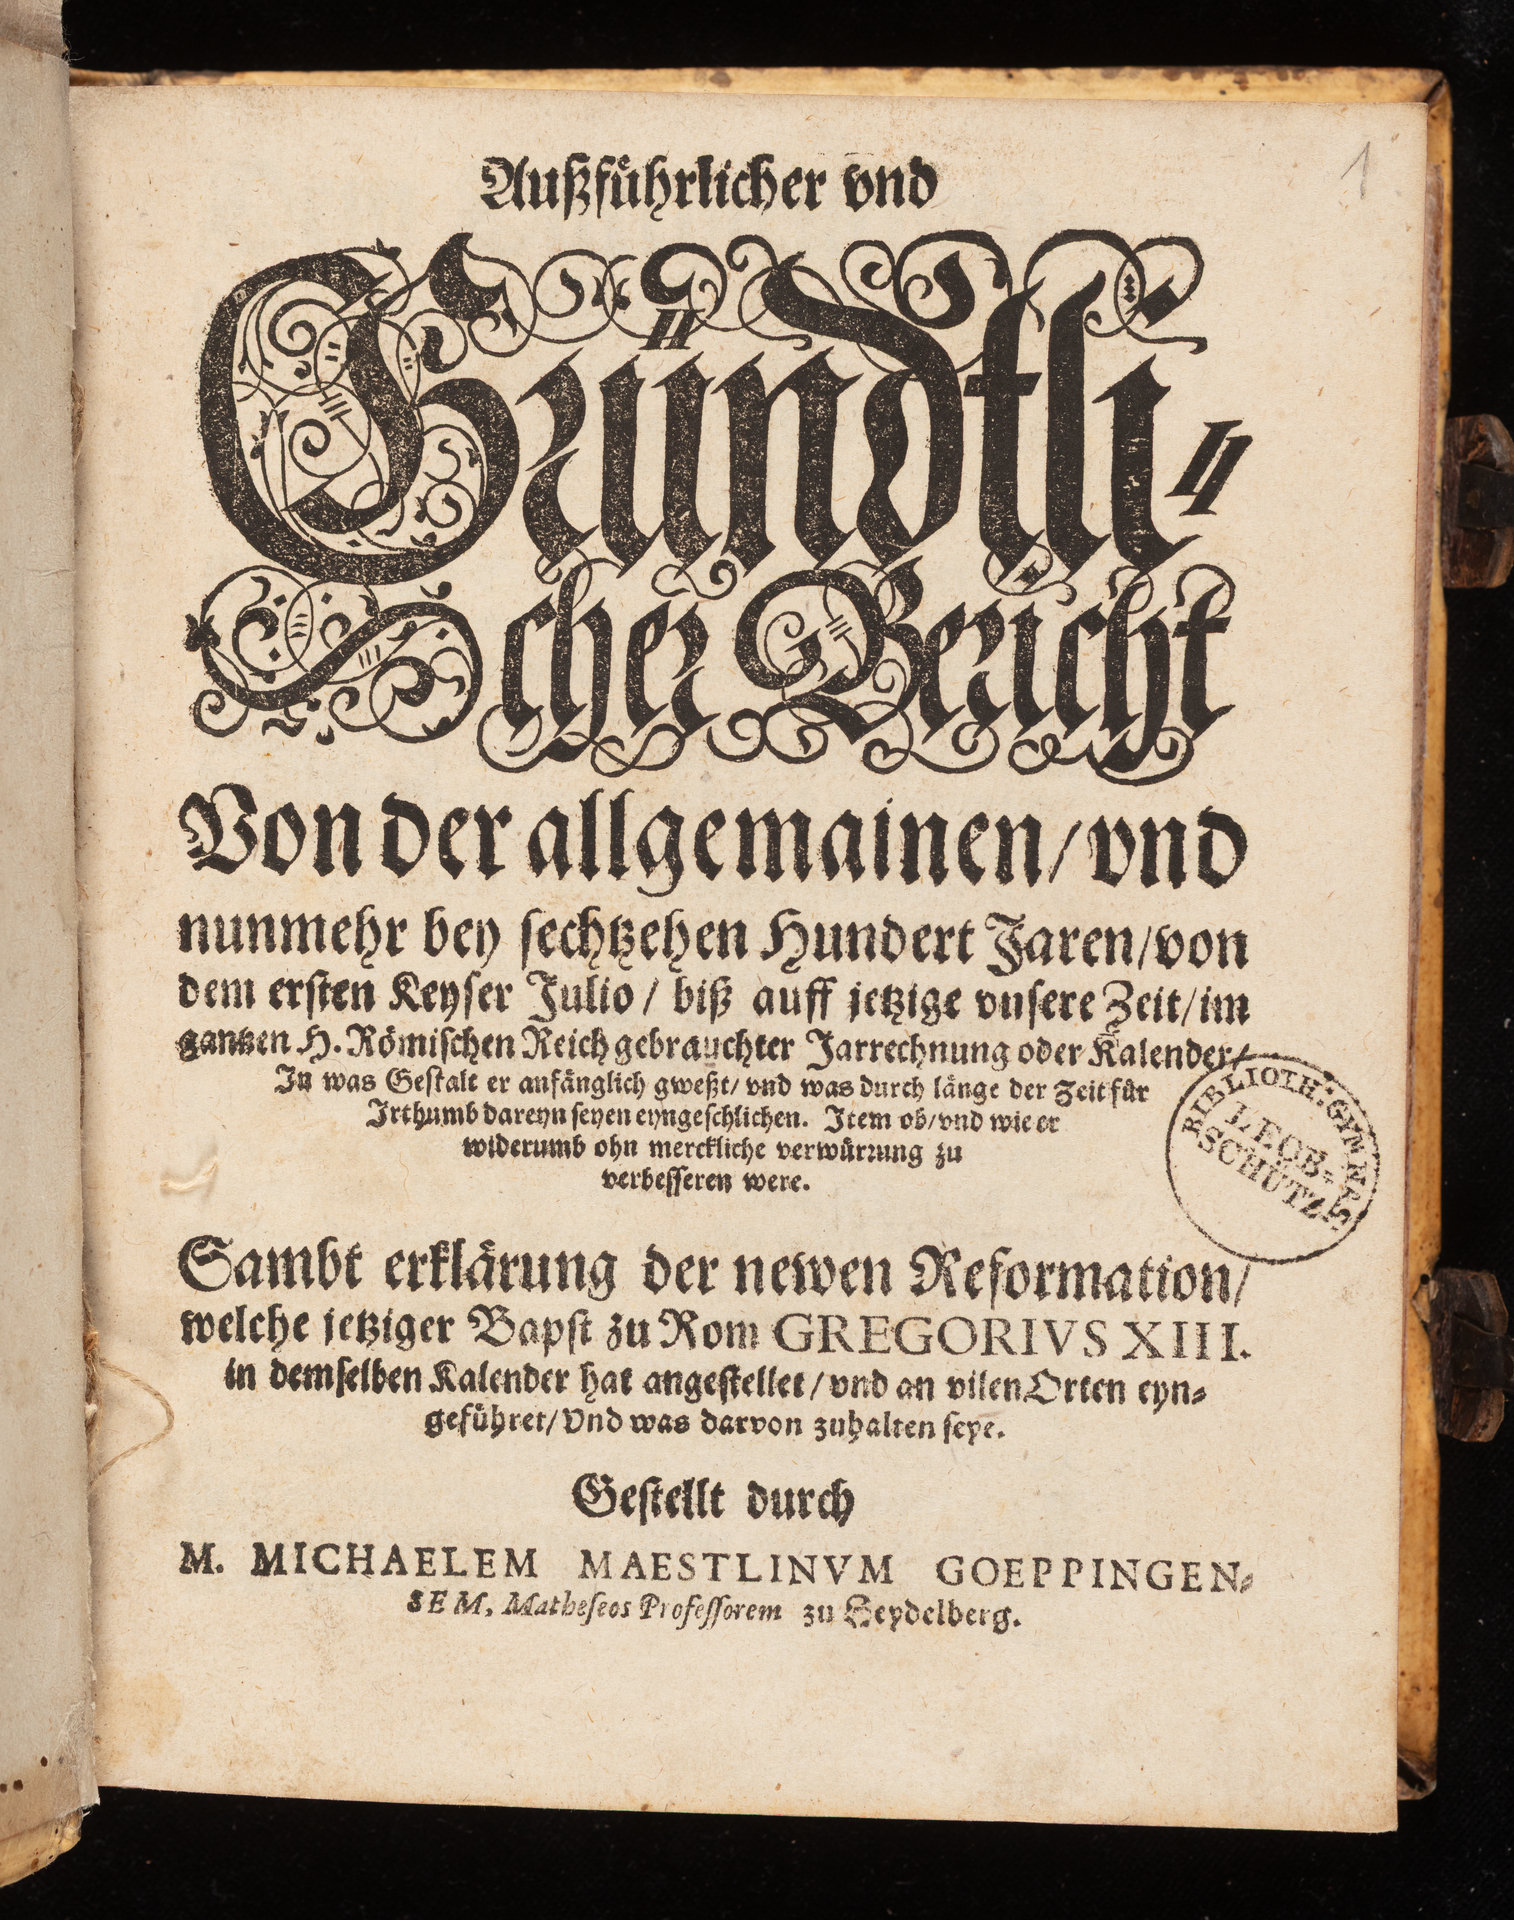 1
Außführlicher vnd
Gründtli⸗
cher Bericht
Von der allgemainen/ vnd
nunmehr bey sechtzehen Hundert Jaren/ von
dem ersten Keyser Julio/ biß auff jetzige vnsere Zeit/ im
gantzen H. Römischen Reich gebrauchter Jarrechnung oder Kalender/
In was Gestalt er anfänglich gweßt/ vnd was durch länge der Zeit für
Irthumb dareyn seyen eyngeschlichen. Item ob/ vnd wie er
widerumb ohn merckliche verwürrung zu
verbesseren were.
BIBLIOTH: GYMN:
LEOB-
SCHÜTZ
Sambt erklärung der newen Reformation/
welche jetziger Bapst zu Rom GREGORIVS XIII.
in demselben Kalender hat angestellet/ vnd an vilen Orten eyn⸗
geführet/ Vnd was darvon zuhalten seye.
Gestellt durch
M. MICHAELEM MAESTLINVM GOEPPINGEN⸗
SEM, Matheseos Professorem zu Heydelberg.